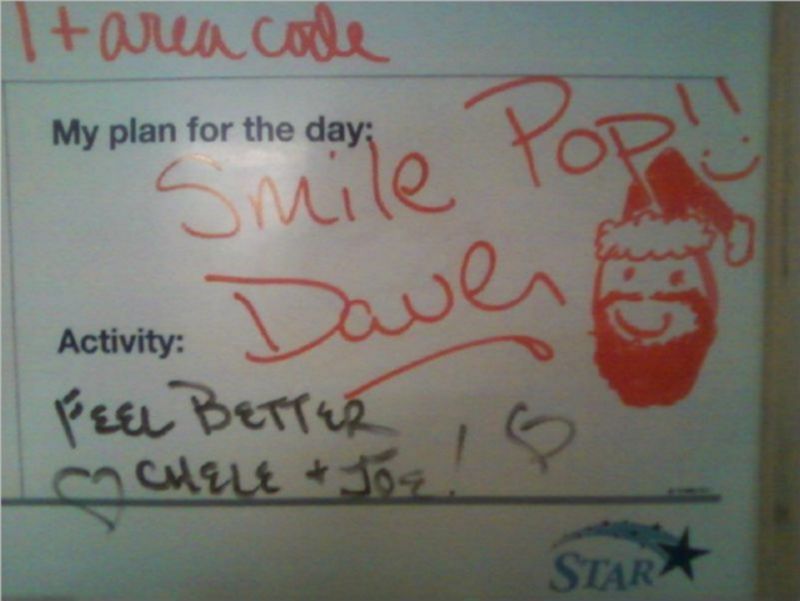 1 + area code
My plan for the day:
Smile Pop!!
Dave
Activity:
FEEL BETTER
CHELE + JOE!
STAR